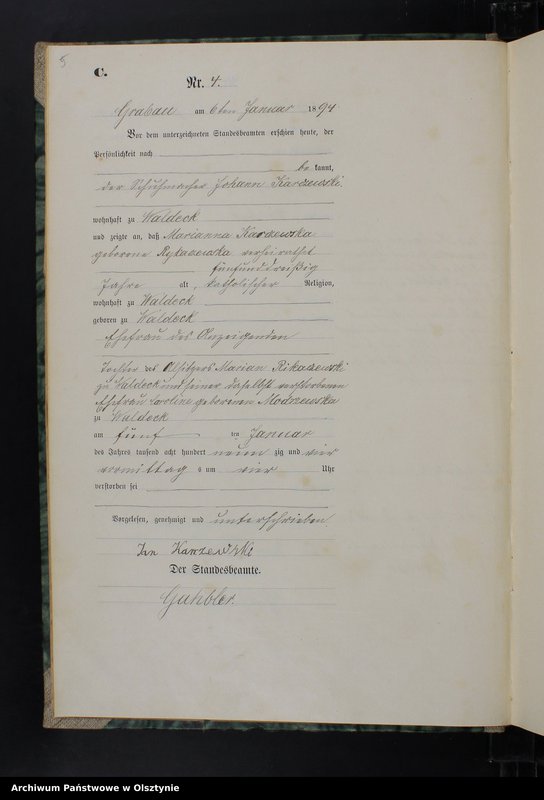 5
C.
Nr. 4.
Grabau am 6ten Januar 1894
Vor dem unterzeichneten Standesbeamten erschien heute, der
Persönlichkeit nach
be kannt,
der Schuhmacher Johann Karzewski
wohnhaft zu Waldeck
und zeigte an, daß Marianna Karzewska
geborene Rykaczewska verheirathet
fünfunddreißig
Jahre alt, katholischer Religion,
wohnhaft zu Waldeck
geboren zu Waldeck
Ehefrau des Anzeigenden
Tochter des Altsitzers Marian Rikaczewski
zu Waldeck und seiner daselbst verstorbenen
Ehefrau Caroline geborenen Modrzewska
zu Waldeck
am fünf ten Januar
des Jahres tausend acht hundert neun zig und vier
vormittag s um vier Uhr
verstorben sei
Vorgelesen, genehmigt und unterschrieben
Jan Karzewski
Der Standesbeamte.
Archiwum Państwowe w Olsztynie